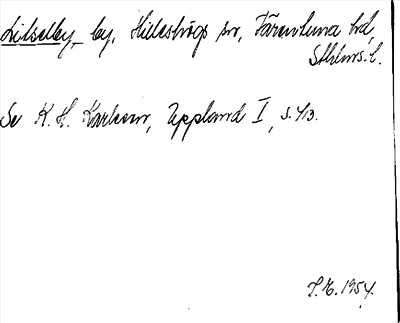 Litselby, by, Hilleshögs sn, Färentuna hd,
Sthlms. l.
Se K. H. Karlsson, Uppland I, s. 413.
1954.